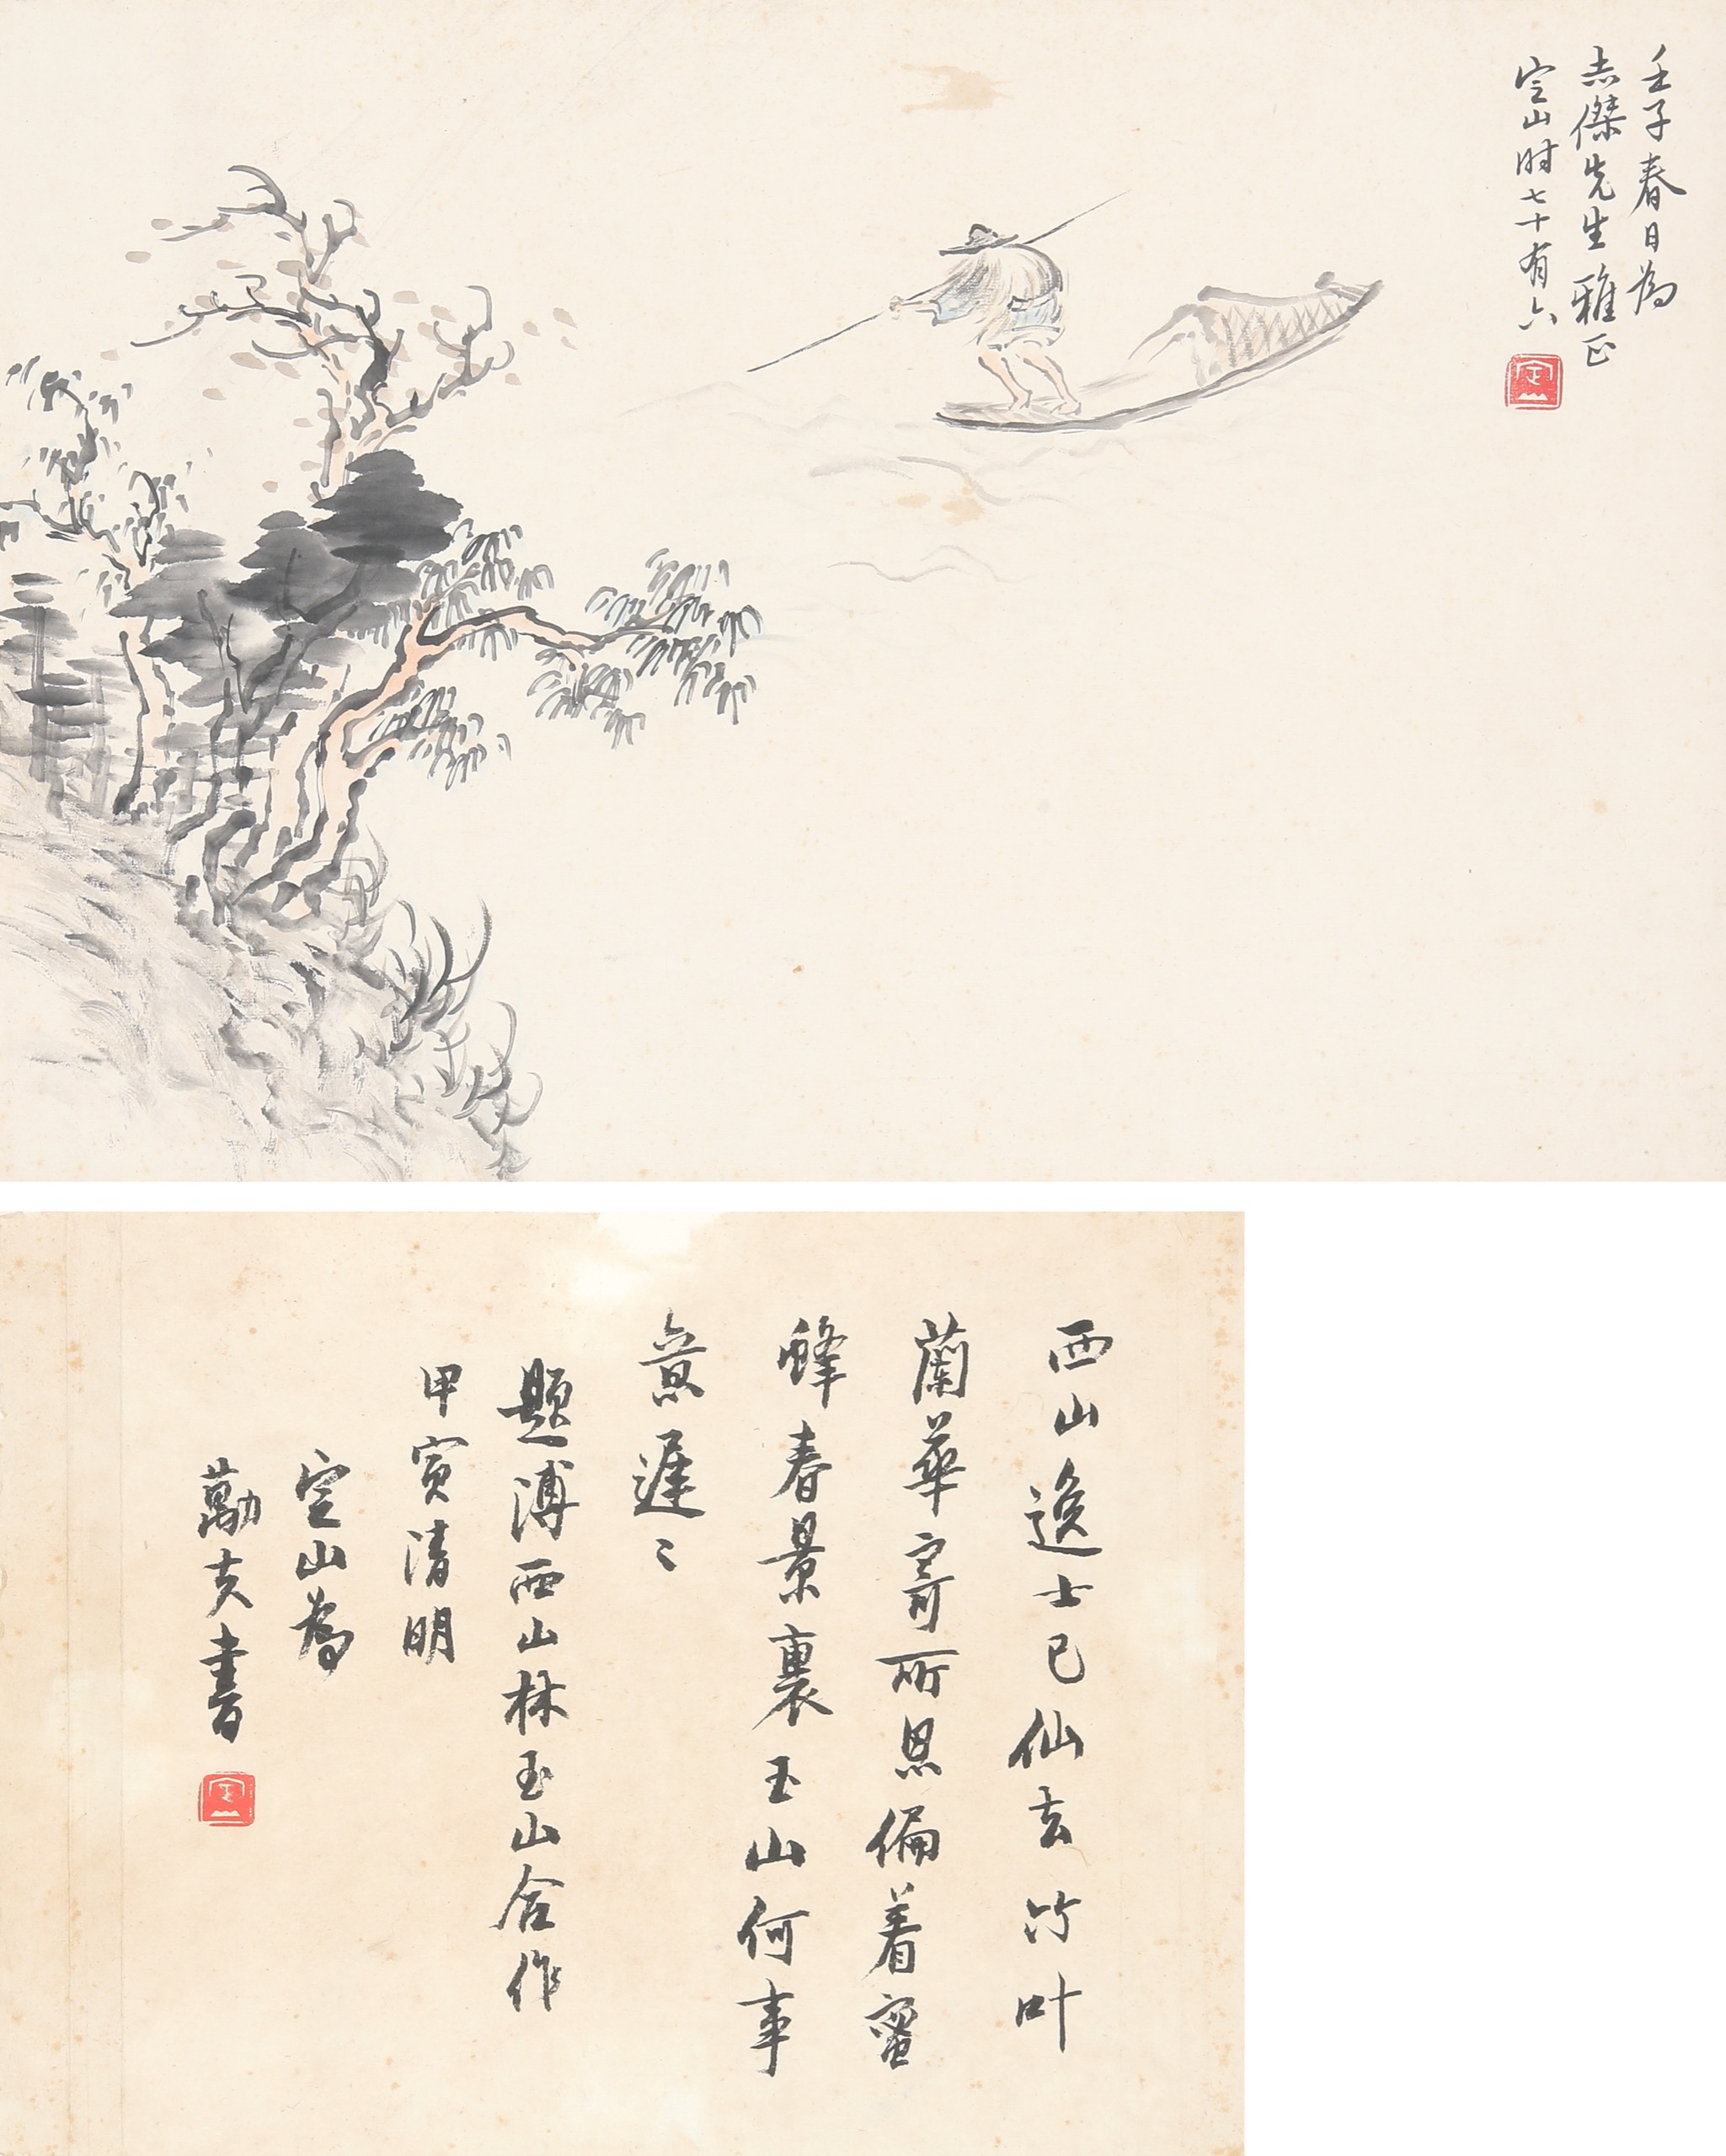 壬子春日為
志傑先生雅正
定山時七十有六
定山
西山逸士已仙去竹叶
蘭華寄所思偏著蜜
蜂春景裏玉山何事
意遲〻
題溥西山林玉山合作
甲寅清明
定山為
勱夫書
定山